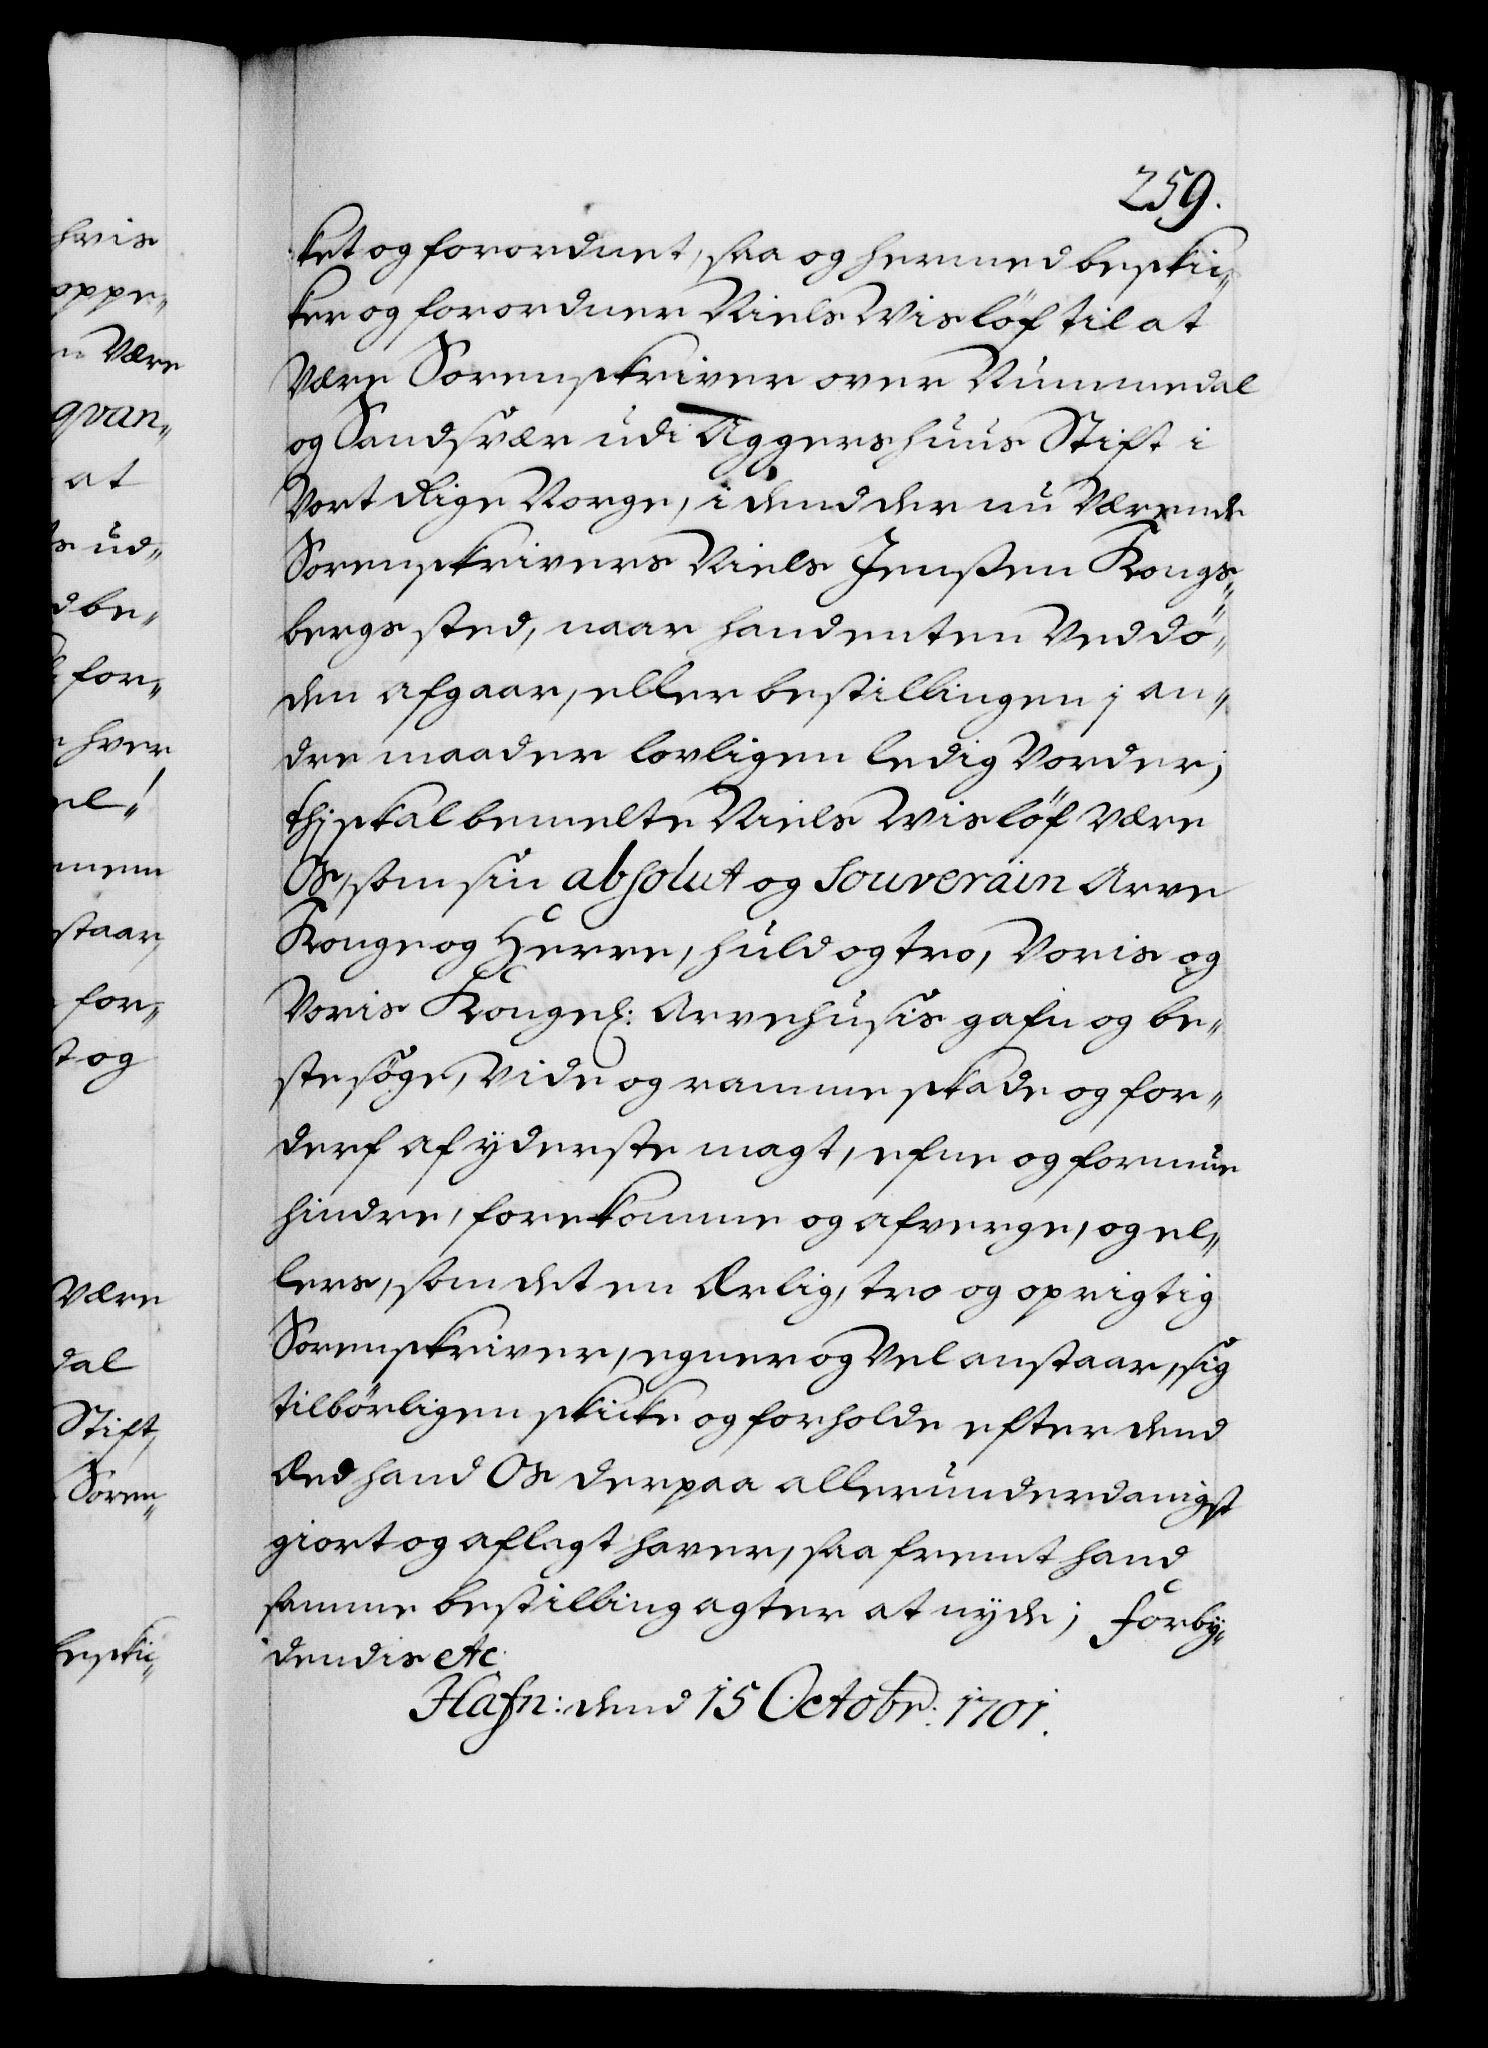 259.
ket og forordnet, saa og hermed beskic„
ker og forordner Niels Wislöf til at
være Sorenskriver over Nummedal
og Sandsvær udi Aggershuus Stift i
Vort Rige Norge, i dend der nu Værende
Sorenskrivers Niels Jenssen Kongs„
bergs sted, naar hand enten Ved dö„
den afgaar, eller bestillingen i an„
dre maader lovligen ledig Vorder;
thj skal bemelte Niels Wislöf være
Os, som sin absolut og Souverain Arve
Konge og Herre, huld og tro, Voris og
Voris Kongel: Arvehusis gafn og be„
ste söge, vide og ramme skade og for„
derf af yderste magt, efne og formue
hindre, forekomme og afverge, og el„
lers, som det en Ærlig, tro og oprigtig
Sorenskriver, egner og Vel anstaar, sig
tilbörligen skicke og forholde efter dend
Æed hand Os derpaa allerunderdanigst
giort og aflagt haver, saafremt hand
samme bestilling agter at nyde; Forby„
dendis etc
Hafn: dend 15 Octobr: 1701.
hvis
oppe„
Være
qvan„
at
ud„
be„
for„
hver
staar,
for„
og
Være
dal
Stift,
Soren„
beskic„